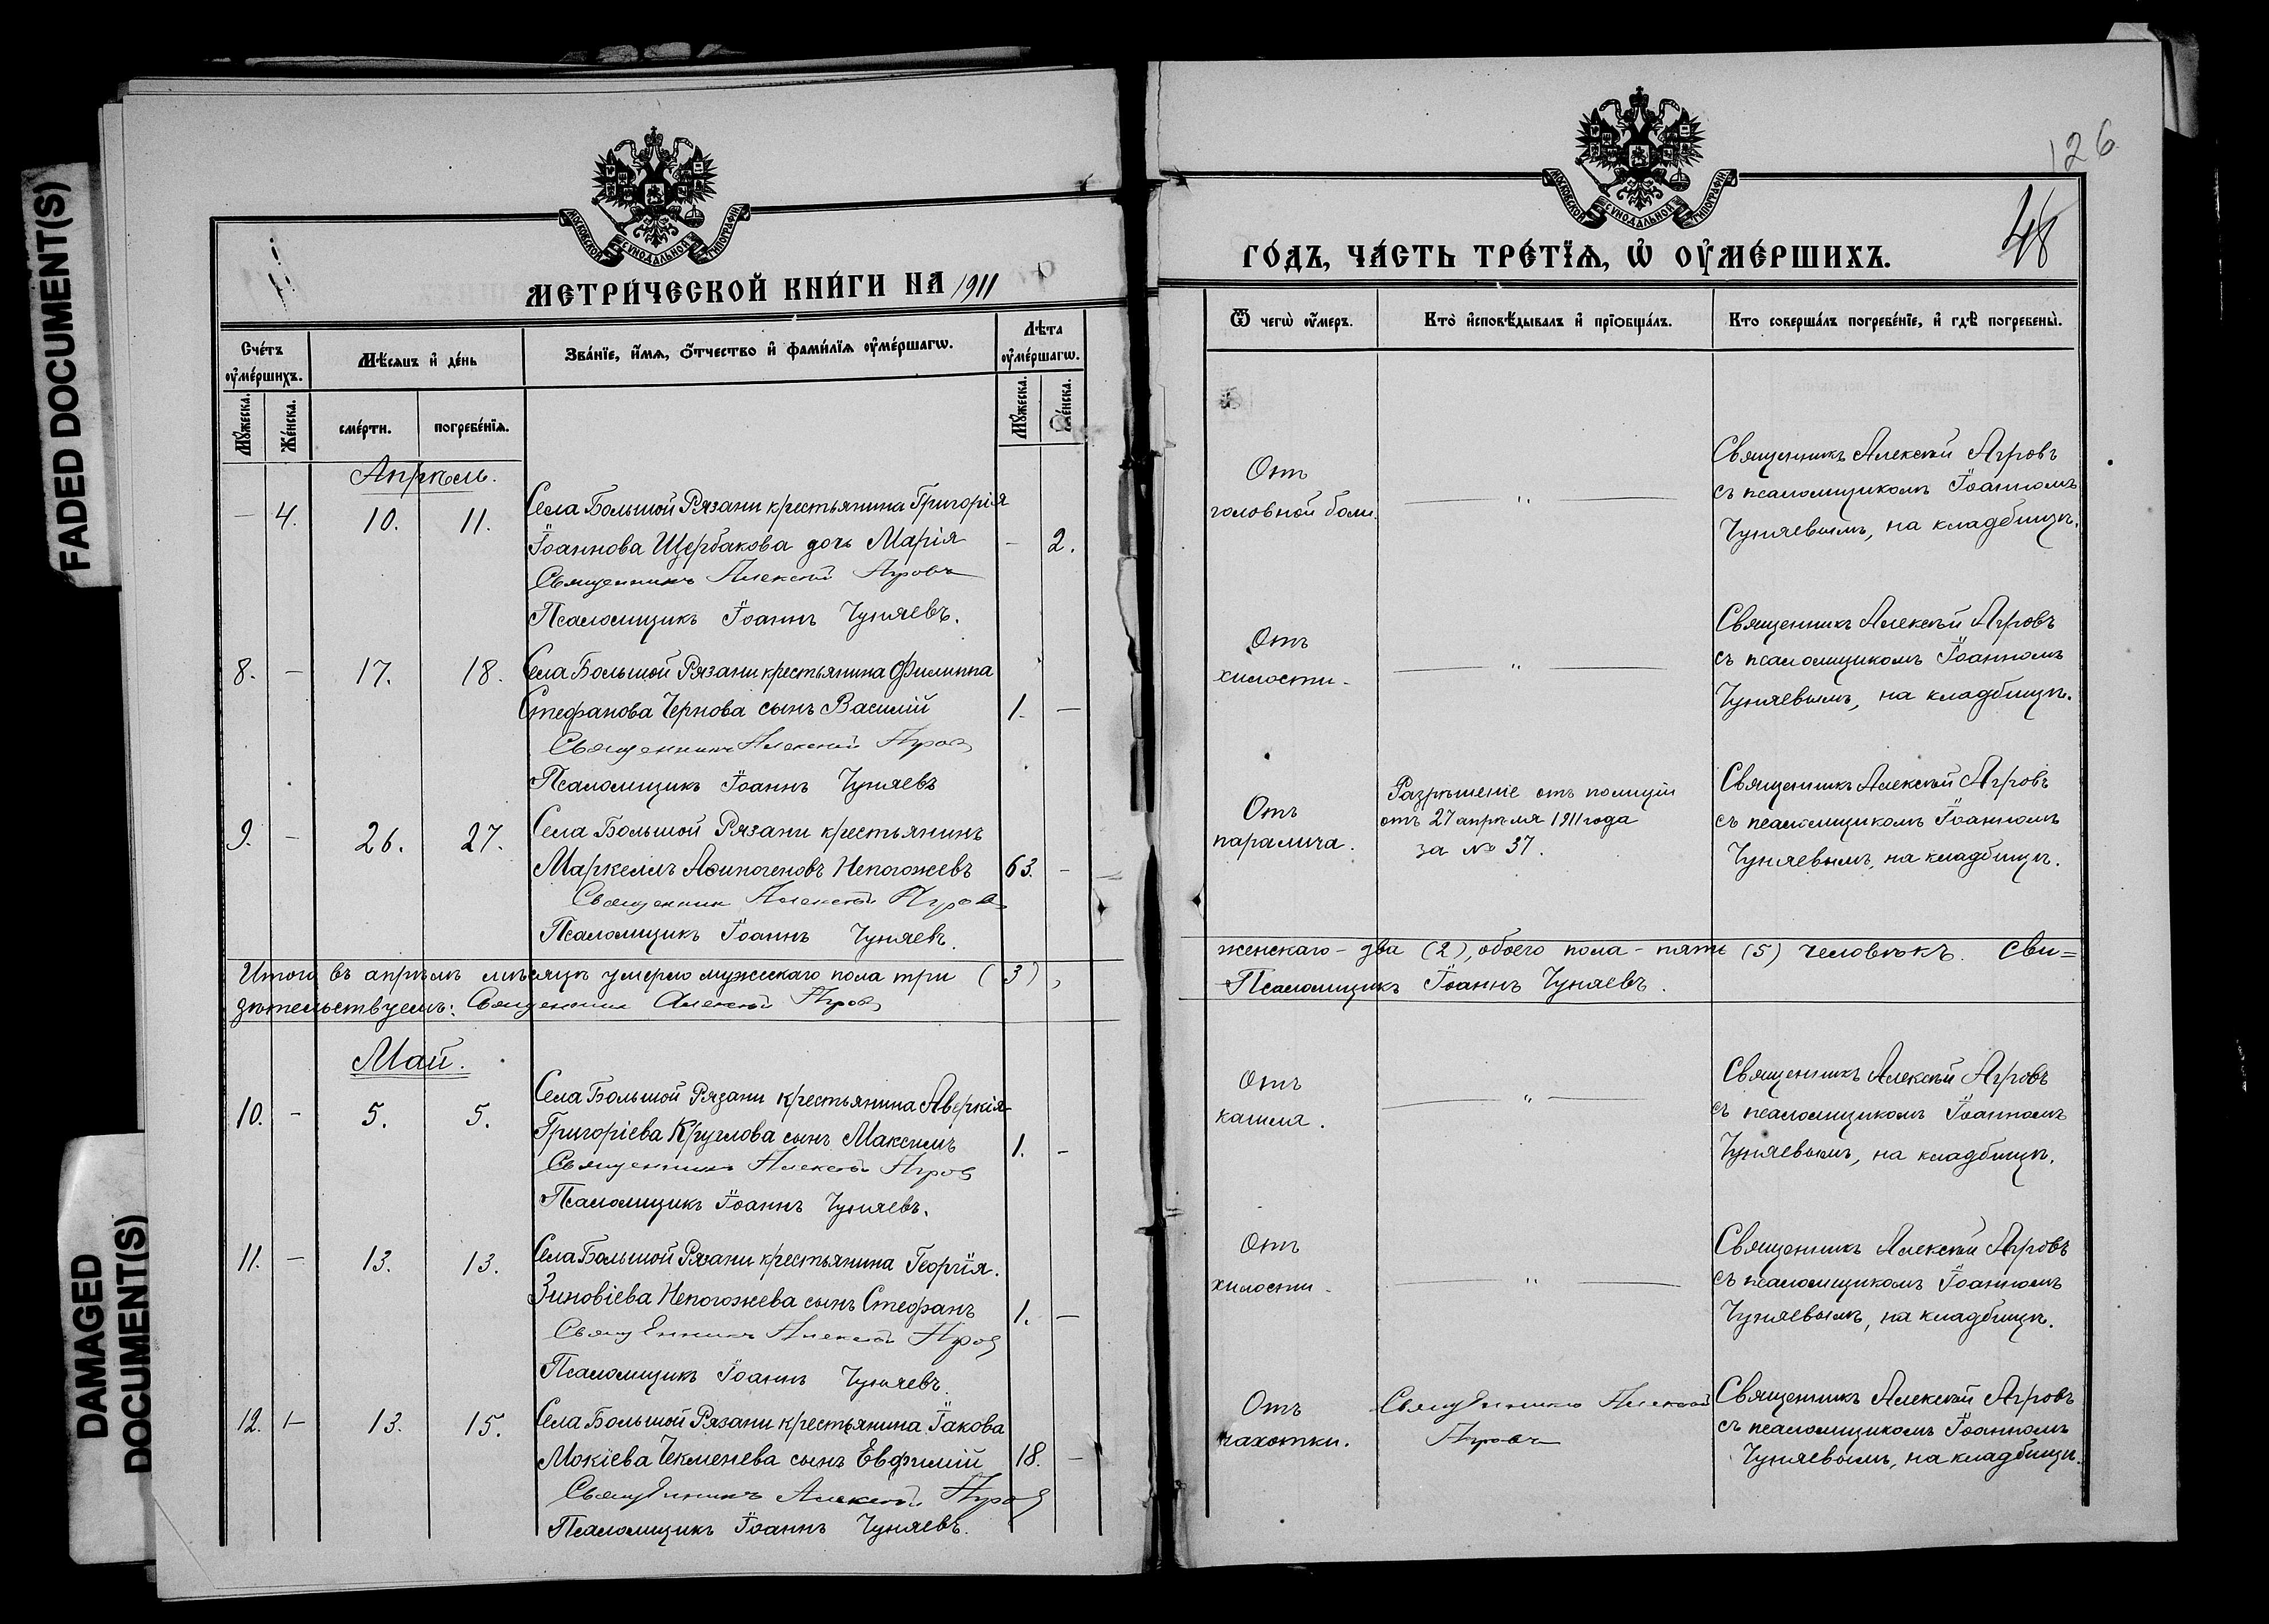 FADED DOCUMENT(S)
DAMAGED
DOCUMENT(S)
МОСКОВСКОЙ СѴНОДАЛЬНОЙ ТИПОГРАФІИ
МЕТРИ́ЧЕСКОЙ КНИ́ГИ НА 1911
Сче́тъ
ᲂу҆ме́ршихъ.
Мѣ́сяцъ и҆ де́нь
Зва́нїе, и҆́мя, ѻ҆́тчество и҆ фами́лїя ᲂу҆ме́ршагѡ.
Лѣ́та
ᲂу҆ме́ршагѡ.
Мꙋ́жеска.
Же́нска.
сме́рти.
погребе́нїя.
Мꙋ́жеска.
Же́нска.
Апрѣль.
— 4. 10. 11. Села Большой Рязани крестьянина Григорія
Іоаннова Щербакова дочь Марія — 2.
Священникъ Алексѣй Агровъ
Псаломщикъ Іоаннъ Чуняевъ.
8. — 17. 18. Села Большой Рязани крестьянина Филиппа
Стефанова Чернова сынъ Василій 1. —
Священникъ Алексѣй Агровъ
Псаломщикъ Іоаннъ Чуняевъ
9. — 26. 27. Села Большой Рязани крестьянинъ
Маркеллъ Аѳиногеновъ Непогожевъ 63. —
Священник Алексѣй Агровъ
Псаломщикъ Іоаннъ Чуняевъ.
Итого въ апрѣлѣ мѣсяцѣ умерло мужескаго пола три (3),
дѣтельствуемъ: Священник Алексѣй Агровъ
Май.
10. — 5. 5. Села Большой Рязани крестьянина Аверкія
Григоріева Круглова сынъ Максимъ 1. —
Священникъ Алексѣй Агровъ
Псаломщикъ Іоаннъ Чуняевъ.
11. — 13. 13. Села Большой Рязани крестьянина Георгія.
Зиновіева Непогожева сынъ Стефанъ 1. —
Священникъ Алексѣй Агровъ
Псаломщикъ Іоаннъ Чуняевъ.
12. — 13. 15. Села Большой Рязани крестьянина Іакова
Мокіева Чекменева сынъ Евфимій 18. —
Священникъ Алексѣй Агровъ
Псаломщикъ Іоаннъ Чуняевъ.
126
48
МОСКОВСКОЙ СѴНОДАЛЬНОЙ ТИПОГРАФІИ
ГО́ДЪ, ЧА́СТЬ ТРЕ́ТЇѦ, Ѡ҆ ОУ҆МЕ́РШИХЪ.
Ѿ чегѡ̀ ᲂу҆́меръ.
Кто̀ и҆сповѣ́дывалъ и҆ прїѻбща́лъ.
Кто соверша́лъ погребе́нїе, и҆ гдѣ̀ погребены̀.
Отъ
головной боли.
— " —
Священникъ Алексѣй Агровъ
съ псаломщикомъ Іоанномъ
Чуняевымъ, на кладбищѣ.
Отъ
хилости.
— " —
Священникъ Алексѣй Агровъ
съ псаломщикомъ Іоанномъ
Чуняевымъ, на кладбищѣ.
Отъ
паралича.
Разрѣшеніе отъ полиціи
отъ 27 апрѣля 1911 года
за № 37.
Священникъ Алексѣй Агровъ
съ псаломщикомъ Іоанномъ
Чуняевымъ, на кладбищѣ.
женскаго – два (2), обоего пола – пять (5) человѣкъ. Сви=
Псаломщикъ Іоаннъ Чуняевъ.
Отъ
кашля.
— " —
Священникъ Алексѣй Агровъ
съ псаломщикомъ Іоанномъ
Чуняевымъ, на кладбищѣ.
Отъ
хилости.
— " —
Священникъ Алексѣй Агровъ
съ псаломщикомъ Іоанномъ
Чуняевымъ, на кладбищѣ.
Отъ
чахотки.
Священникъ Алексѣй
Агровъ
Священникъ Алексѣй Агровъ
съ псаломщикомъ Іоанномъ
Чуняевымъ, на кладбищѣ.